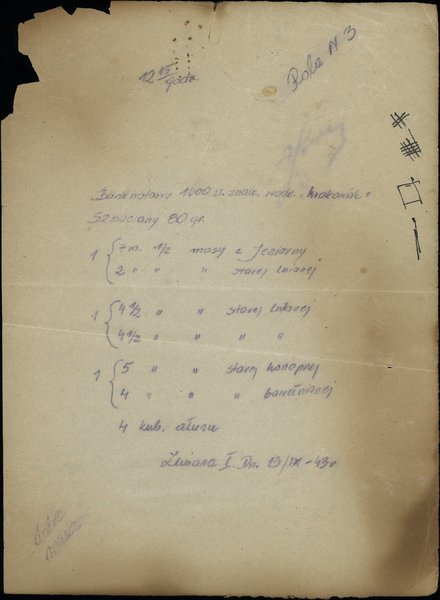 12 15 godz.
Rola N 3
Banknotowy 1000 zł. znak. wodn. "Krakowiak"
Szmaciany 80 gr.
1 { 7 m. 1/2 masy z Jeziorny
2 " " " starej lnianej
1 { 4 1/2 " " starej lnianej
4 1/2 " " " "
1 { 5 " " starej konopnej
4 " " " bawełnianej
4 kub. ałunu
Zmiana I. Dn. 13/IX-43 r.